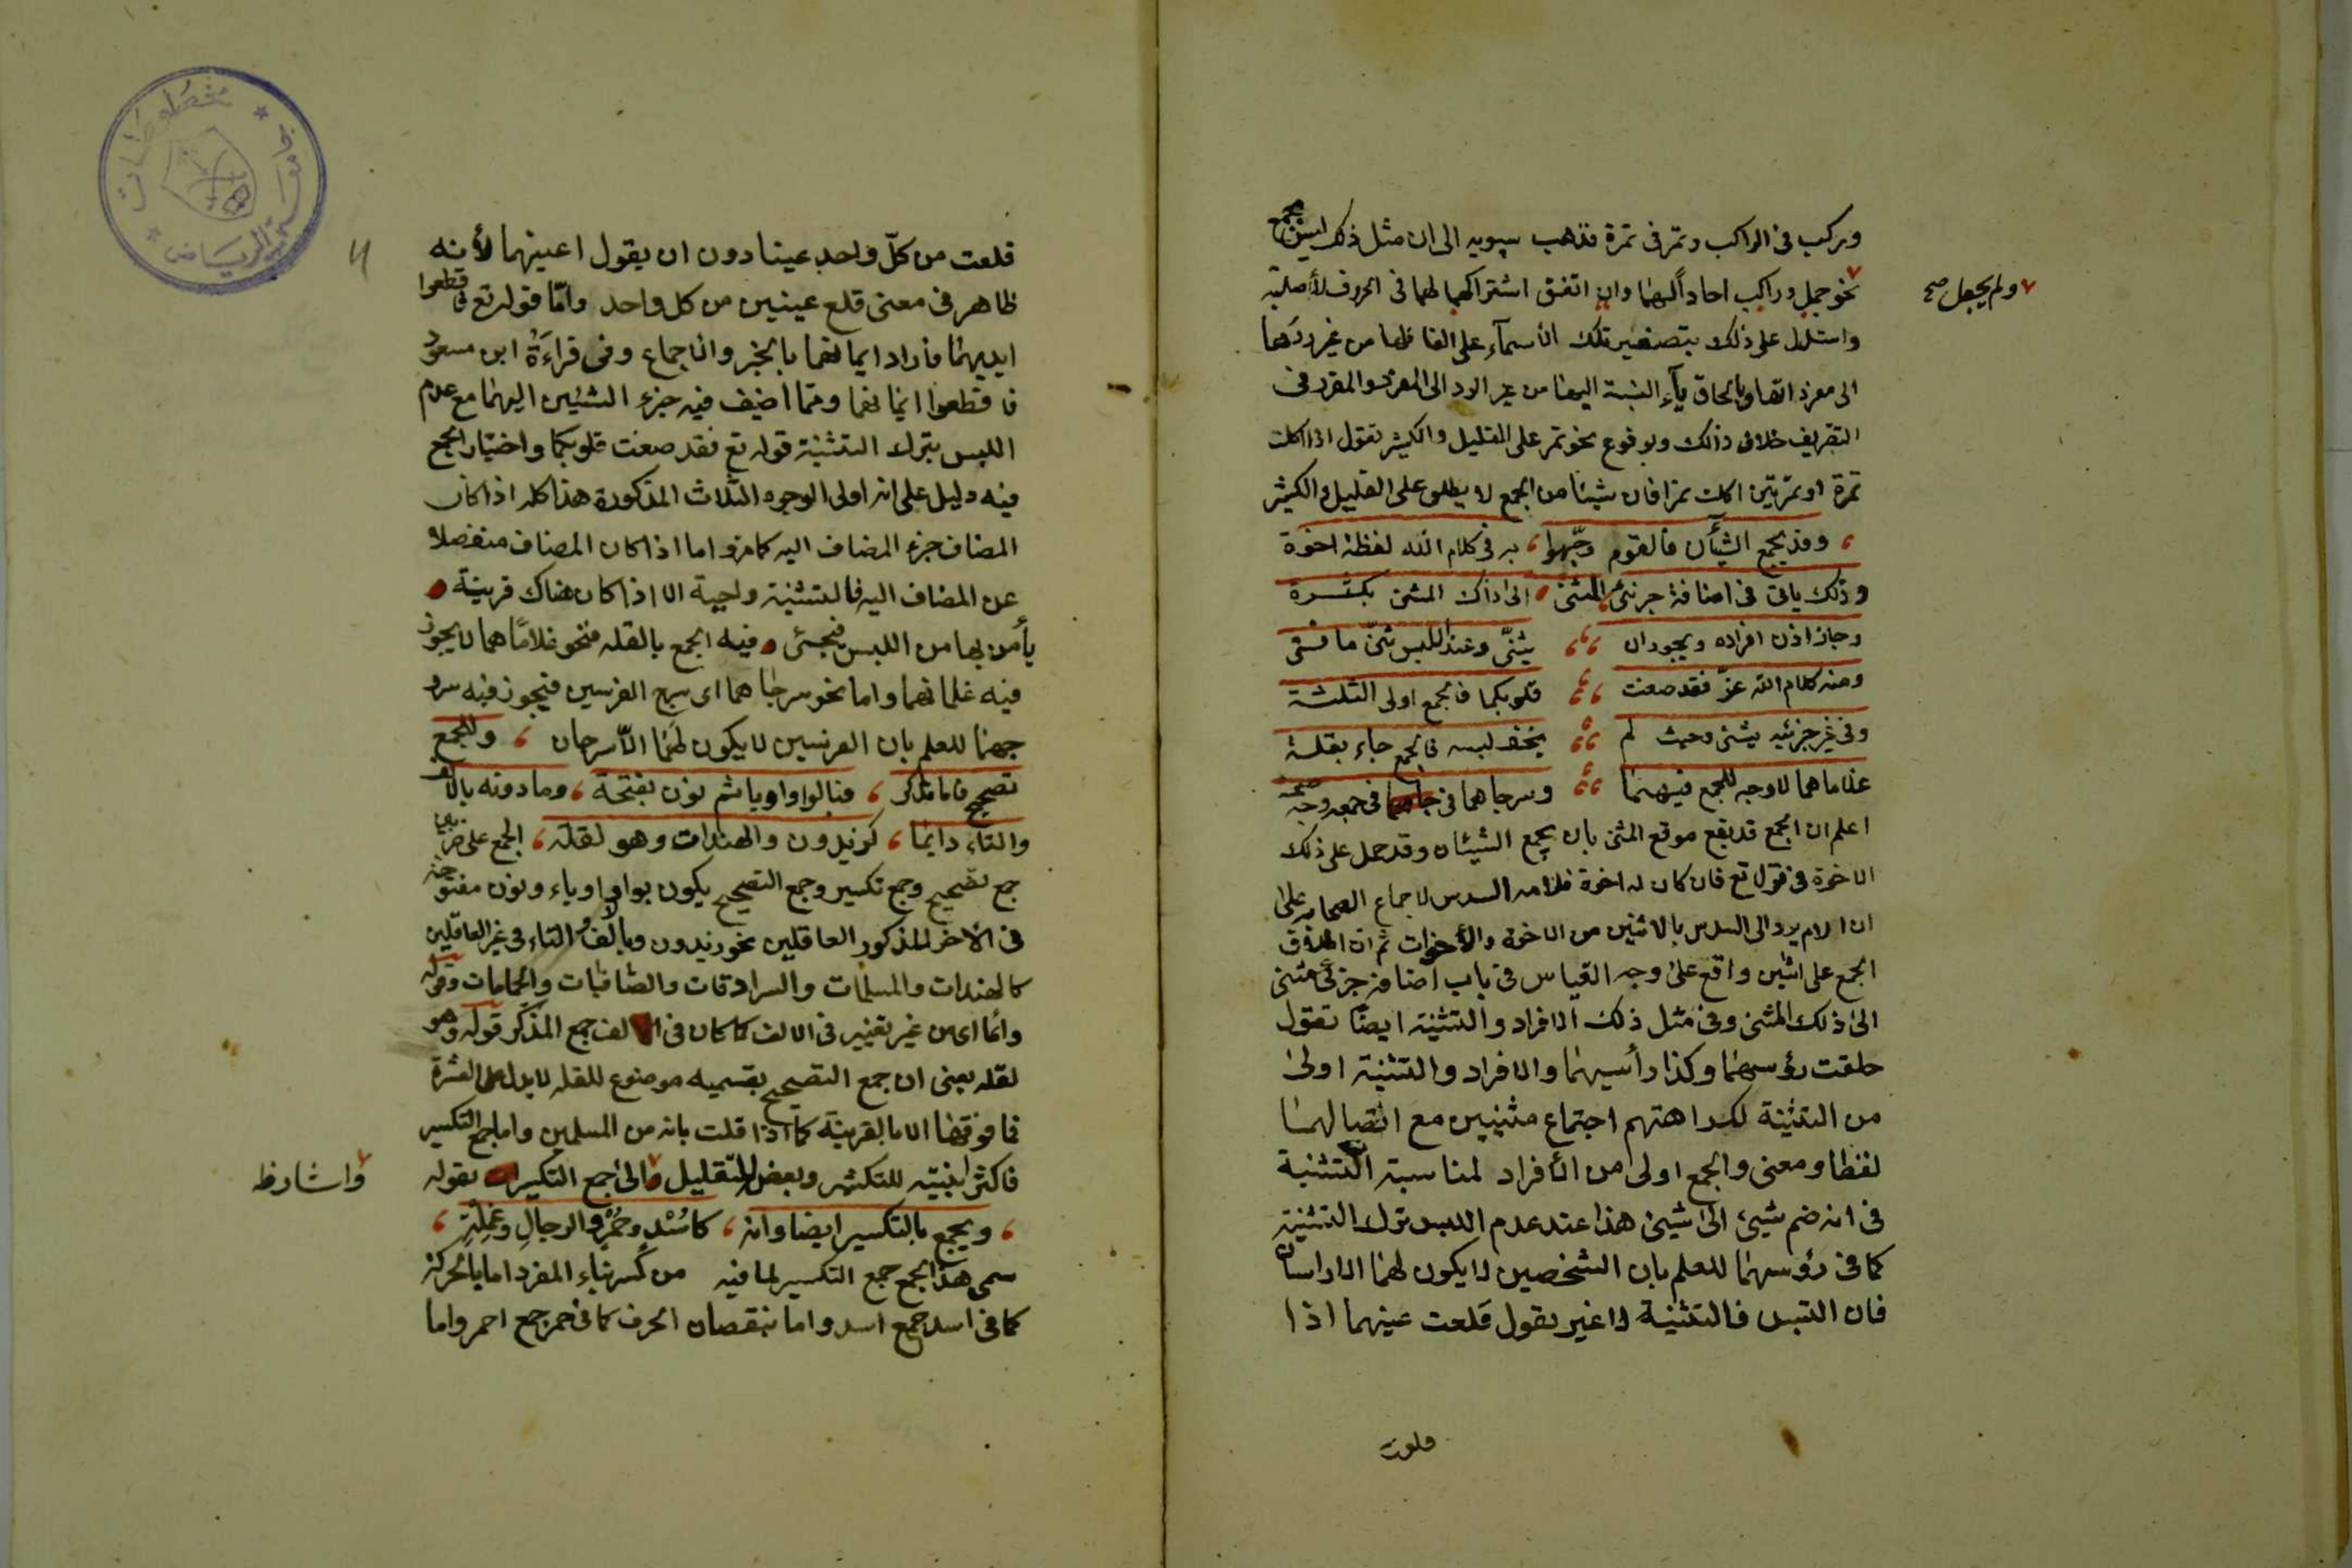 وركب في الراكب وتمر في تمرة فذهب سيبويه الى ان مثل ذلك ليس بجمع
نحو جمل وراكب احاداً لهما وان اتفق اشتراكهما لهما في الحروف الأصلية
ولم يجعل صح
واستدل على ذلك بتصغير تلك الأسمآء على الفاظها من غير ردها
الى مفرداتها وبالحاق يآء النسبة اليها من غير الرد الى المفرد والمقرر في
التصريف خلاف ذلك وبوقوع نحو تمر على القليل والكثير تقول اذا اكلت
تمرة او تمرتين اكلت تمرا فان شيئا من الجمع لا يطلق على القليل والكثير
وقد يجمع الشيآن فالقوم وجّهوا به في كلام الله لفظة اخوة
وذلك ياتي في اضافة جزئي المثنى الى ذاك المثنى بكثرة
وجاز اذن افراده ويجوز ان يثنّى وعند اللبس ثنّ ما
ومنه كلام الله عزّ فقد صغت قلوبكما فالجمع اولى الثلثة
وفي غير جزئيه يثنى وحيث لم يخف لبسه فالجمع جاء بقلة
غلاماهما لا وجه للجمع فيهما وسرجاهما في جمعه وجه صحة
اعلم ان الجمع قد يقع موقع المثنى بان يجمع الشيئان وقد حمل على ذلك
الاخوة في قوله تع فان كان له اخوة فلامه السدس لاجماع الصحابة على
ان الام يرد الى السدس بالاثنين من الاخوة والأخوات ثم ان اطلاق
الجمع على اثنين واقع على وجه القياس في باب اضافة جزئي مثنى
الى ذلك المثنى وفي مثل ذلك الافراد والتثنية ايضًا تقول
حلقت رؤسهما وكذا رأسيهما والافراد والتثنية اولى
من التثنية لكراهتهم اجتماع مثنيين مع اتصالهما
لفظا ومعنى والجمع اولى من الأفراد لمناسبة التثنية
في انه ضم شيئ الى شيئ هذا عند عدم اللبس بترك التثنية
كما في رؤسهما للعلم بان الشخصين لا يكون لهما الا راسان
فان التبس فالتثنية لا غير بقول قلعت عينهما اذا
قلعت
قلعت من كلّ واحد عينا دون ان يقول اعينهما لأنه
ظاهر في معنى قلع عينين من كل واحد وامّا قوله تع فاقطعوا
ايديهما فاراد ايمانهما بالخبر والاجماع وفي قراءة ابن مسعود
فاقطعوا ايمانهما ومما اضيف فيه جزء الشيئين اليهما مع عدم
اللبس بترك التثنية قوله تع فقد صغت قلوبكما واختيار الجمع
فيه دليل على انه اولى الوجوه الثلاث المذكورة هذا كله اذا كان
المضاف جزء المضاف اليه كما مر واما اذا كان المضاف منفصلا
عن المضاف اليه فالتثنية واجبة الا اذا كان هناك قرينة
يأمن بها من اللبس فيجئ فيه الجمع بالقله فنحو غلاماهما لا يجوز
فيه غلمانهما واما نحو سرجاهما اى سرج الفرسين فيجوز فيه سرو
جهما للعلم بان الفرسين لا يكون لهما الاّ سرجان وللجمع
تصحيح فاما مذكر فنالوا واو يا ثم نون بفتحة وما دونه بالالف
والتاء دايما كزيدون والهندات وهو لقلة الجمع على ضربين
جمع تصحيح وجمع تكسير وجمع التصحيح يكون بواو او ياء ونون مفتوحة
في الآخر للمذكور العاقلين نحو زيدون وبالف والتاء في غير العاقلين
كالهندات والمسلمات والسرادقات والصافنات والحمامات وقوله
دائما اى من غير تغيير في الالف كما كان في الف جمع المذكر قوله وهو
لقله يعني ان جمع التصحيح بقسميه موضوع للقله لا يدل على العشرة
فما فوقها الا بالقرينة كما اذا قلت بانه من المسلمين واما جمع التكسير
فاكثر ابنيته للتكثير وبعض للتقليل والى جمع التكسير بقوله
واشار ظ
ويجمع بالتكسير ايضا وانه كاسْدٍ وحُمْرٍ والرجالِ وغلمةٍ
سمى هذا الجمع جمع التكسير لما فيه من كسر بناء المفرد اما بالحركة
كما في اسد جمع اسد واما بنقصان الحرف كما في حمر جمع احمر واما
مخطوطات
الرياض